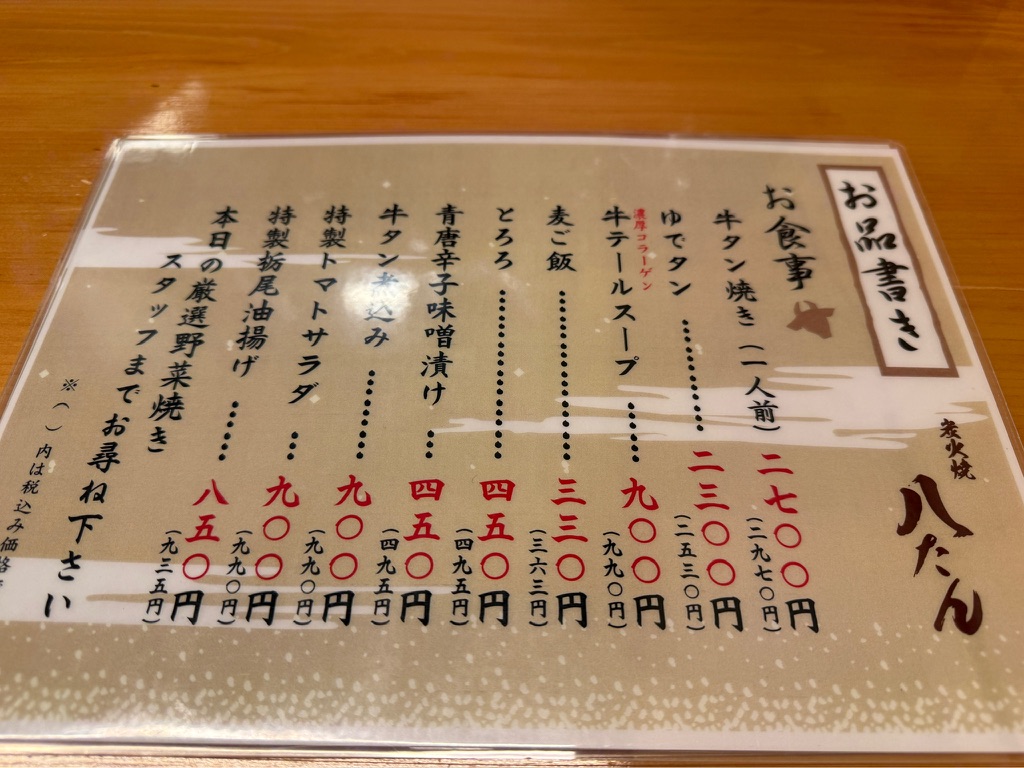 お品書き
炭火焼
八たん
お食事
牛タン焼き（一人前）二七〇〇円
（二九七〇円）
ゆでタン…………二三〇〇円
（二五三〇円）
濃厚コラーゲン
牛テールスープ……九〇〇円
（九九〇円）
麦ご飯………………三三〇円
（三六三円）
とろろ………………四五〇円
（四九五円）
青唐辛子味噌漬け…四五〇円
（四九五円）
牛タン煮込み………九〇〇円
（九九〇円）
特製トマトサラダ…九〇〇円
（九九〇円）
特製栃尾油揚げ……八五〇円
（九三五円）
本日の厳選野菜焼き
スタッフまでお尋ね下さい
※（ ）内は税込み価格